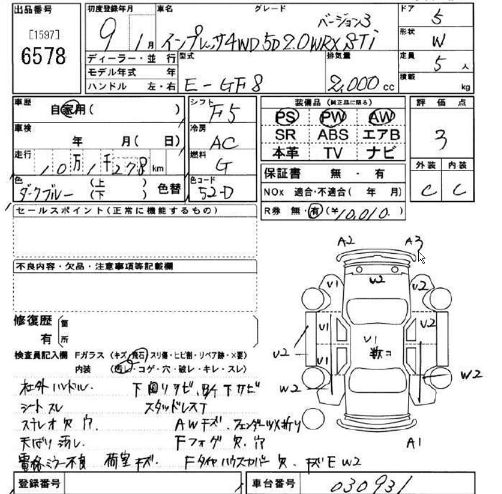 出品番号 初度登録年月 車名 グレード ドア
[1597] 9年1月 インプレッサ4WD 5D 2.0 WRX STi バージョン3 5
6578 ディーラー・並行 型式 排気量 形状 W
モデル年式 年 E-GF8 2,000cc 定員 5人
ハンドル 左・右 積載 kg
車歴 自家用( ) シフト F5 装備品(純正品に限る) 評価点
車検 年 月(日) 冷房 AC PS PW AW 3
走行 10万1千278km 燃料 G SR ABS エアB
本革 TV ナビ 外装 内装
色 ダークブルー (上)(下) 色替 色コード 52-D 保証書 無・有 C C
NOx 適合・不適合( 年 月)
セールスポイント(正常に機能するもの) R券 無・有(¥10,010.)
A2 A3
W2 U1
不良内容・欠品・注意事項等記載欄
修復歴 箇
有 所
U1 U1
U2 U1 U2
検査員記入欄 Fガラス(キズ・飛石・スリ傷・ヒビ割・リペア跡・×要)
内装 (汚レ・コゲ・穴・破レ・キレ・スレ) W2 W2
社外ハンドル. 下回リサビ,
シートスレ スタッドレス
ステレオ欠 穴 AWキズ.
天ばり汚レ Fフォグ欠.穴 A1
電格ミラー不良 荷室キズ Fタイヤハウスカバー欠. キズE W2
登録番号 車台番号 030931